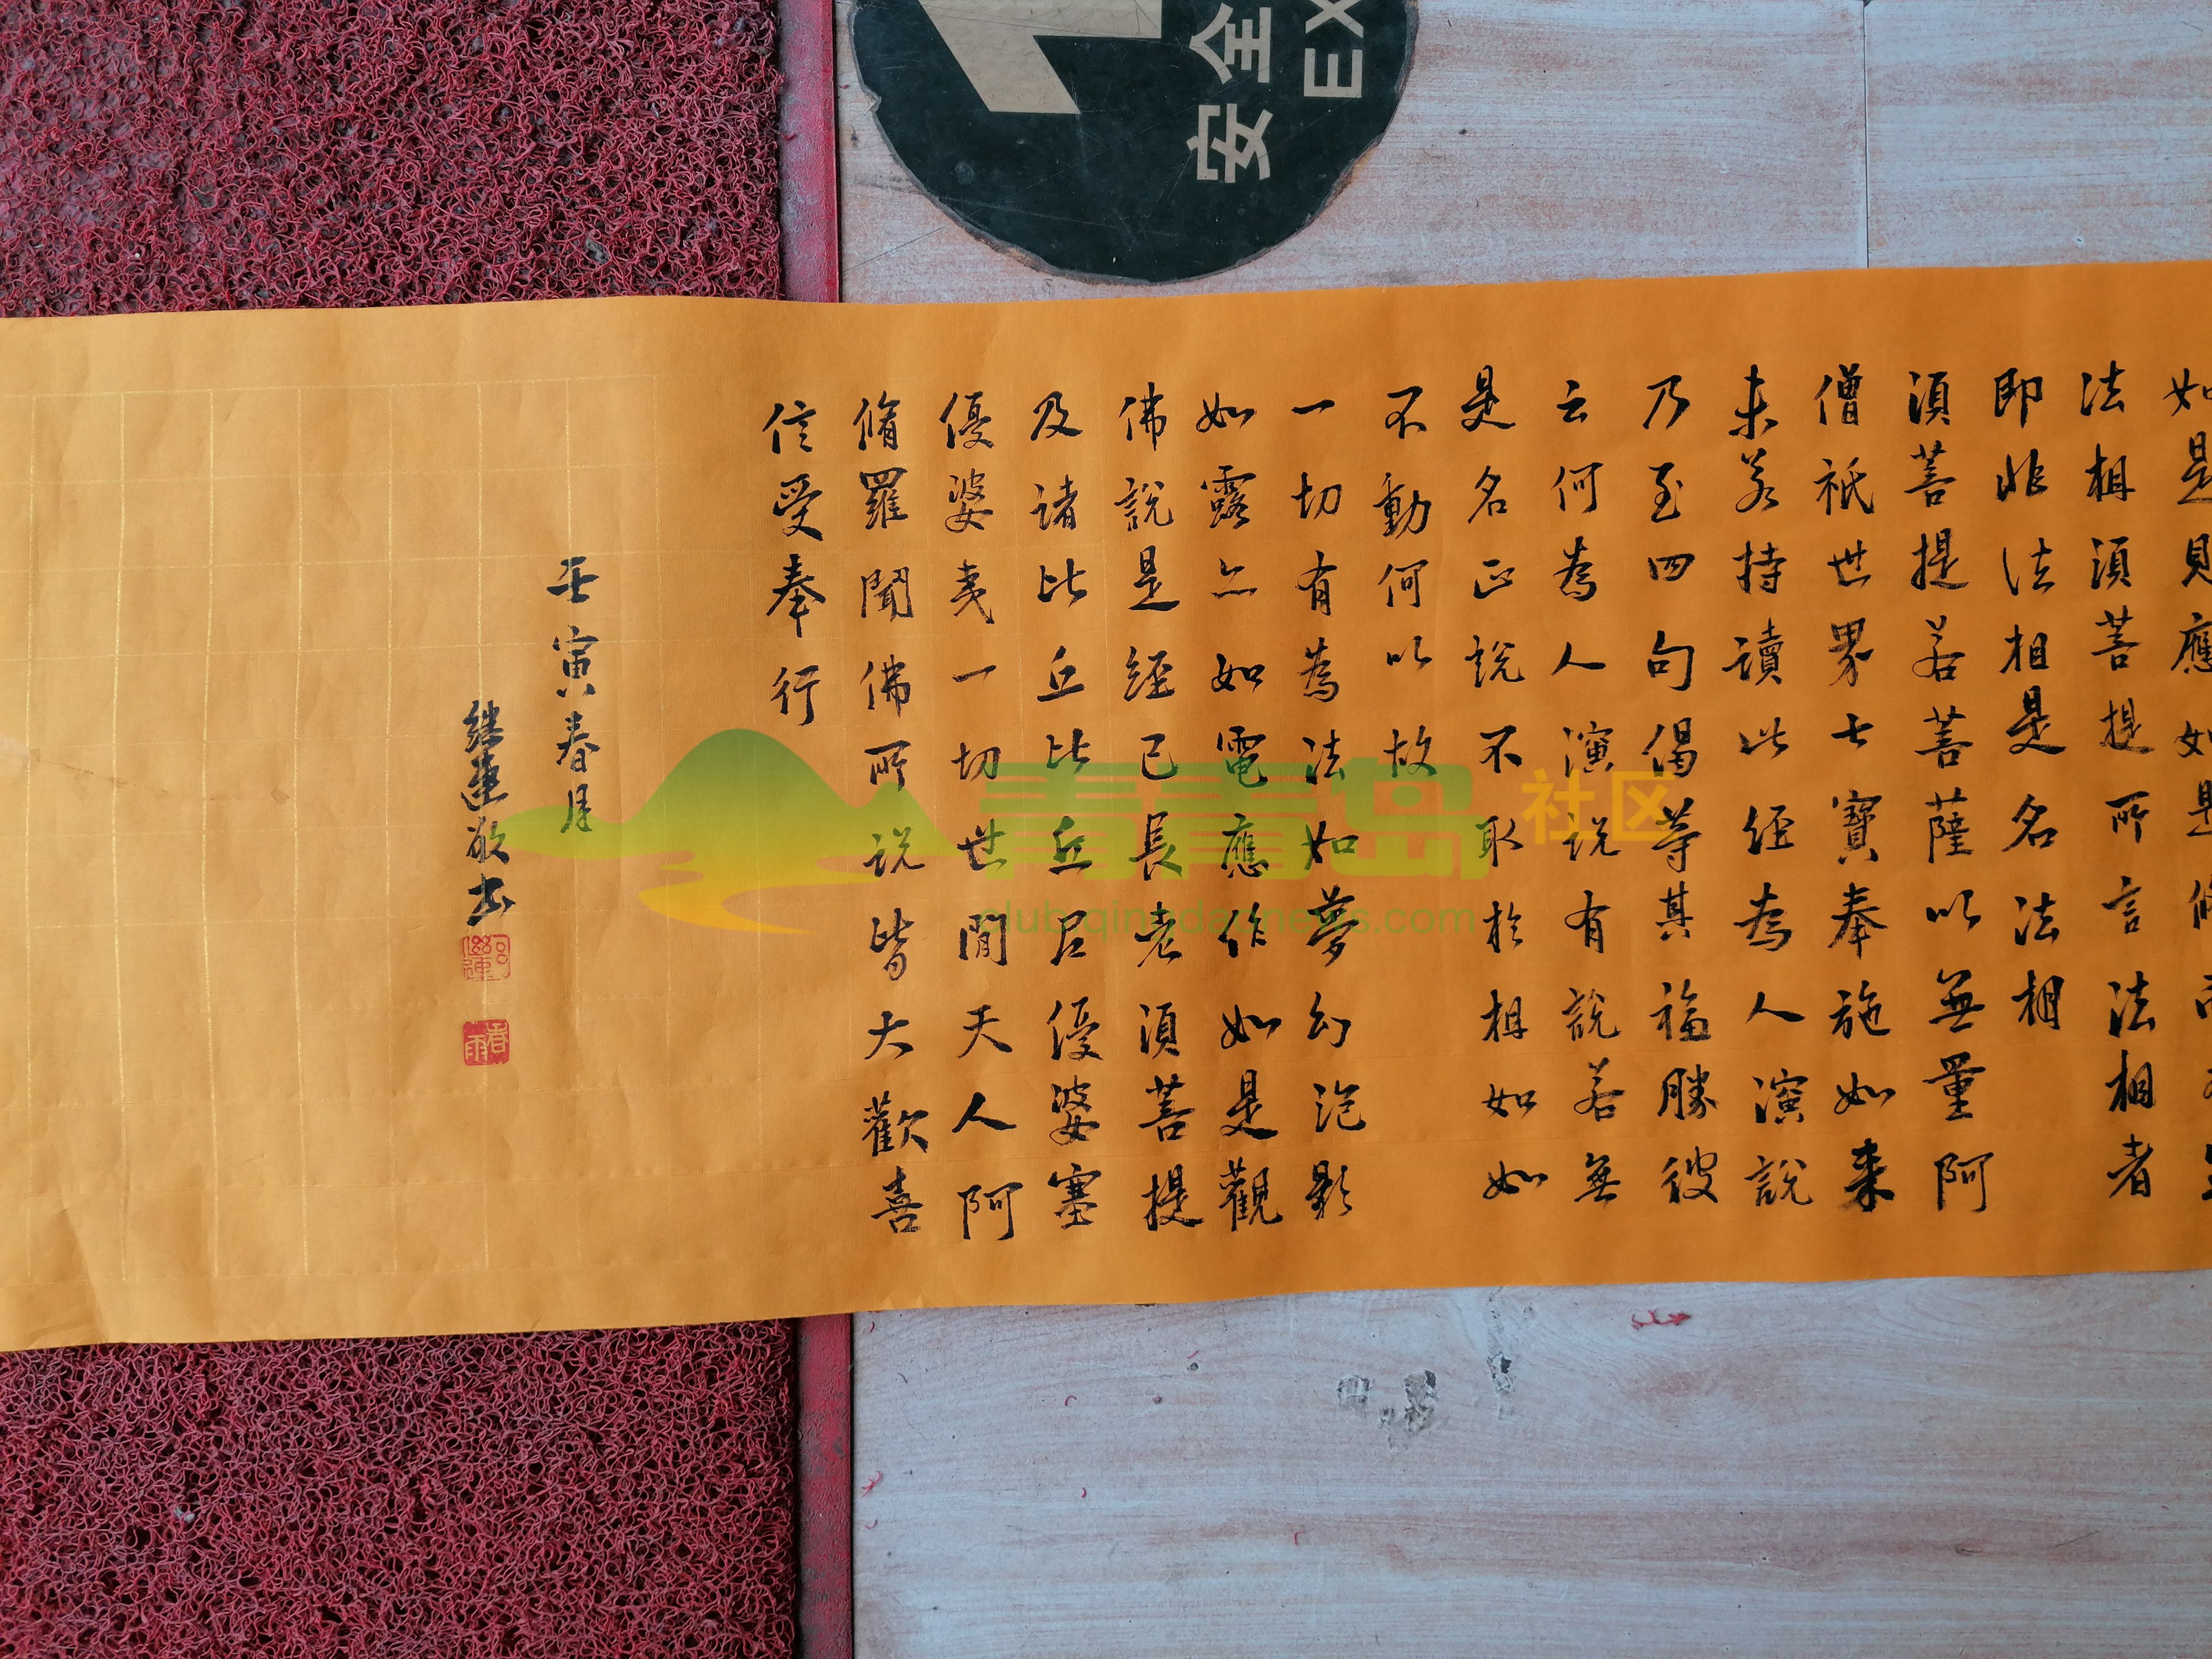 法相須菩提所言法相者
即非法相是名法相
須菩提若菩薩以無量阿
僧祇世界七寶奉施如来
来若持讀此經為人演說
乃至四句偈等其福勝彼
云何為人演说有說若無
是名正说不取於相如如
不動何以故
一切有為法如夢幻泡影
如露亦如電應作如是觀
佛說是經已長老須菩提
及诸比丘比丘丘尼優婆塞
優婆夷一切世間天人阿
脩羅聞佛所说皆大歡喜
信受奉行
壬寅春月
敬书
春雨
安全
EX
青青岛 社区
club.qingdaonews.com